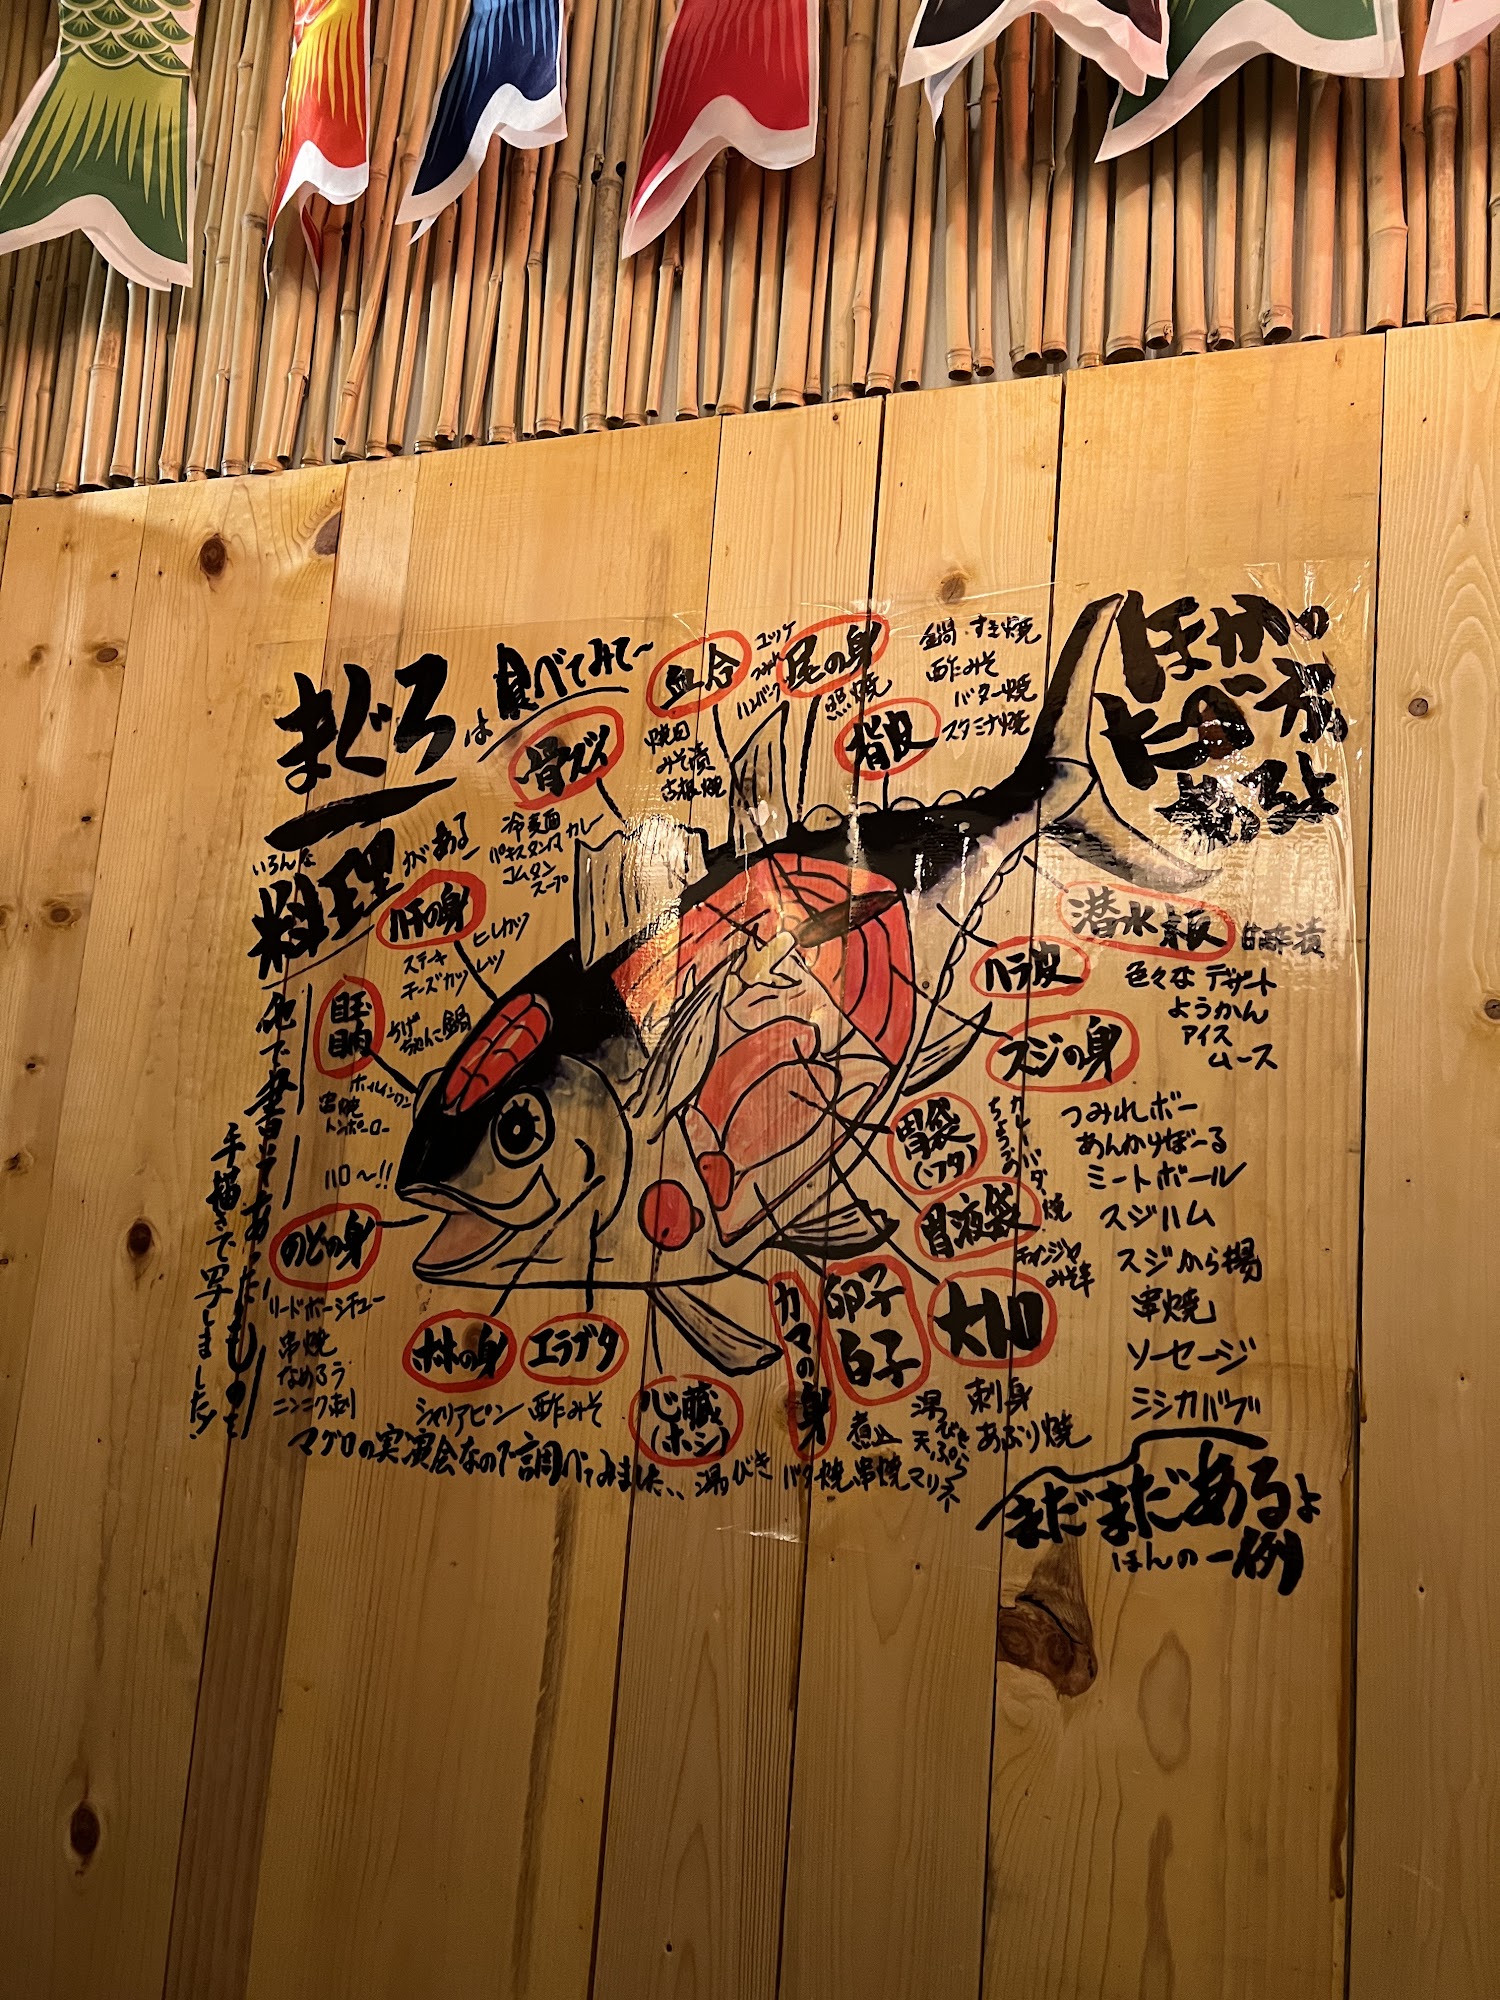 まぐろ
は
食べてみて〜
いろんな
料理がある
他で昔あったものを
手描きで写しました!
骨ズイ
冷麦面
パキスタンカレー
コムタン
スープ
血合
ユッケ
つみれ
ハンバーグ
焼肉
みそ漬
古根焼
尾の身
照焼
背皮
鍋・すき焼
酢みそ
バター焼
スタミナ焼
ほか
あるよ
ハチの身
ヒレカツ
ステーキ
チーズカツレツ
ちげ
ちゃんこ鍋
目玉
目肉
ホイルワン
串焼
トンポーロー
ハロ〜!!
のどの身
リードボーシチュー
串焼
なめろう
ニンニク刺
ホホの身
エラブタ
酢みそ
心臓
(ホシ)
カマの身
バター焼
串焼
卵子
白子
煮込
湯びき
天ぷら
マリネ
大トロ
刺身
あぶり焼
潜水板
甘酢漬
色々なデザート
ようかん
アイス
ムース
ハラ皮
スジの身
つみれボー
あんかけぼーる
ミートボール
スジハム
スジから揚
串焼
ソーセージ
シシカバブ
胃袋
(ワタ)
胃液袋
チャンジャ
マグロの実演会なので調べてみました、、
湯びき
まだまだあるよ
ほんの一例